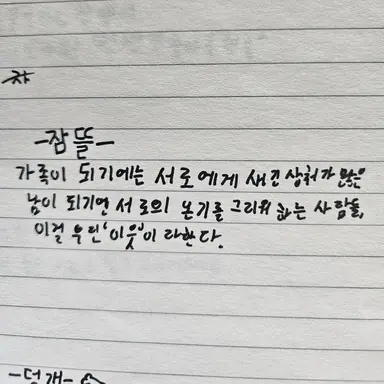 -잠뜰-
가족이 되기에는 서로에게 새긴 상처가 많은
남이 되기엔 서로의 온기를 그리워 하는 사람들,
이걸 우린 '이웃'이라 한다.
-덩개-